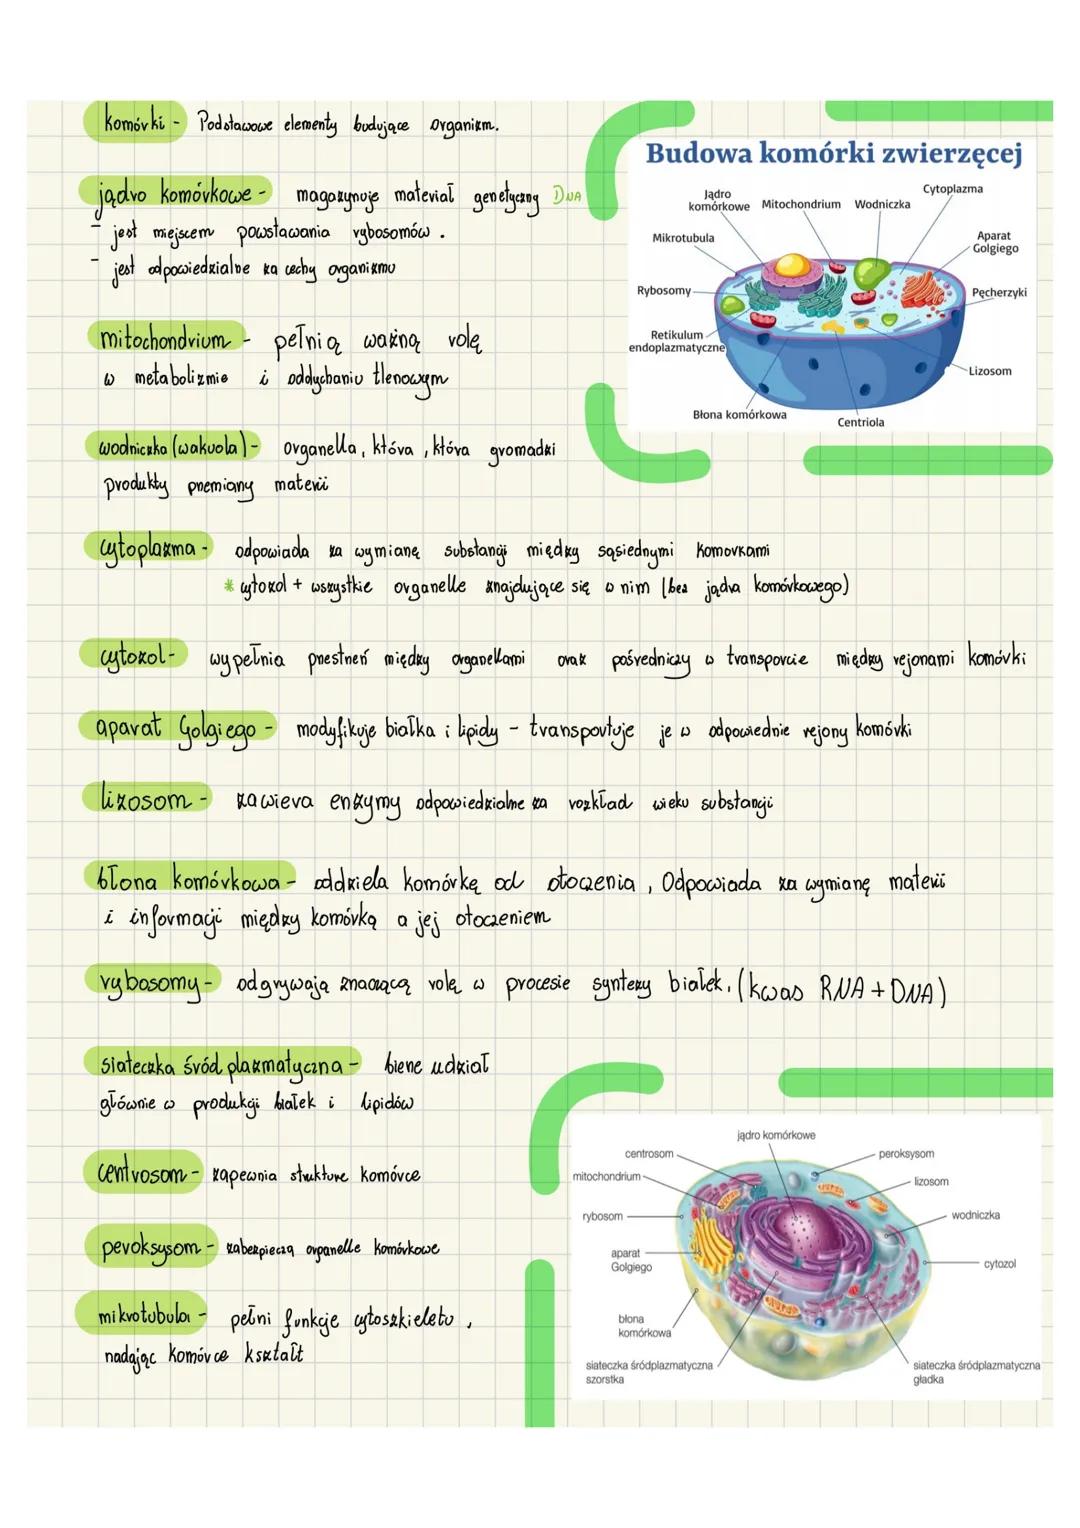 komórki - Podstawowe elementy budujące organizm.
jądro komórkowe - magazynuje materiał genetyczny DNA
- jest miejscem powstawania rybosomów.
- jest odpowiedzialne za cechy organizmu
mitochondrium - pełnią ważną rolę
w metabolizmie i oddychaniu tlenowym
wodniczka (wakuola) - organella, która, która gromadzi
produkty przemiany materii
cytoplazma - odpowiada za wymianę substancji między sąsiednymi komorkami
* cytozol + wszystkie organelle znajdujące się w nim (bez jądra komórkowego)
cytozol - wypełnia przestrzeń między organellami oraz pośredniczy w transporcie między rejonami komórki
aparat Golgiego - modyfikuje białka i lipidy - transportuje je w odpowiednie rejony komórki
lizosom - zawiera enzymy odpowiedzialne za rozkład wielu substancji
błona komórkowa - oddziela komórkę od otoczenia, Odpowiada za wymianę materii
i informacji między komórką a jej otoczeniem
rybosomy - odgrywają znaczącą rolę w procesie syntezy białek. (kwas RNA + DNA)
siateczka śródplazmatyczna - bierze udział
głównie w produkcji białek i lipidów
centrosom - zapewnia strukture komórce
peroksysom - zabezpieczą organelle komórkowe
mikrotubula - pełni funkcje cytoszkieletu,
nadając komórce kształt
Budowa komórki zwierzęcej
Jądro
komórkowe
Mitochondrium
Wodniczka
Cytoplazma
Mikrotubula
Aparat
Golgiego
Rybosomy
Pęcherzyki
Retikulum
endoplazmatyczne
Lizosom
Błona komórkowa
Centriola
jądro komórkowe
centrosom
peroksysom
mitochondrium
lizosom
rybosom
wodniczka
aparat
Golgiego
cytozol
błona
komórkowa
siateczka śródplazmatyczna
szorstka
siateczka śródplazmatyczna
gładka